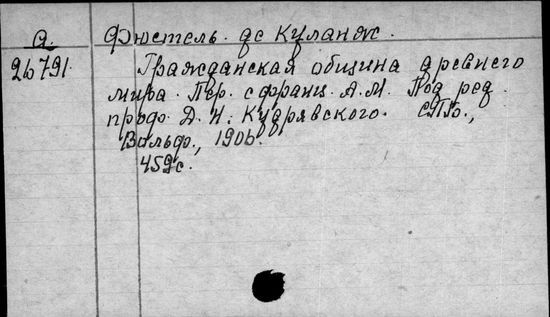 А. Фюстель де Куланж.
26791. Гражданская община древнего
мира. Пер. с франц. А.М. Под ред.
проф. Д.Н. Кудрявского. СПб.,
Вольф., 1906.
459с.